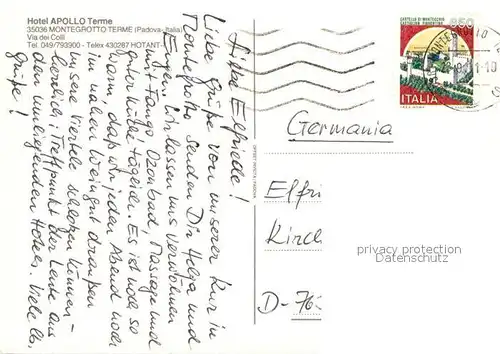 Hotel APOLLO Terme
35036 MONTEGROTTO TERME (Padova-Italia)
Via dei Colli
Tel. 049/793900 - Telex 430287 HOTANT-
Liebe Elfriede!
Liebe Grüße von unserer Kur in
Montegrotto senden Dir Helga und
Eugen. Wir lassen uns verwöhnen
mit Fango, Ozonbad, Massage und
guter Küche täglich. Es ist noch so
warm, daß wir jeden Abend noch
im nahen Weingut draußen
unsere Viertele schlotzen können -
herrlich; Treffpunkt der Leute aus
den umliegenden Hotels. Viele lb.
Grüße!
CASTELLO DI MONTECCHIO
CASTIGLION FIORENTINO
650
ITALIA
Germania
Elfri
Kirch
D-76
privacy protection
Datenschutz